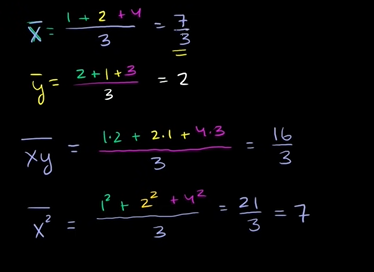 x̄ = (1 + 2 + 4)/3 = 7/3
ȳ = (2 + 1 + 3)/3 = 2
x̅y̅ = (1·2 + 2·1 + 4·3)/3 = 16/3
x̅²̅ = (1² + 2² + 4²)/3 = 21/3 = 7